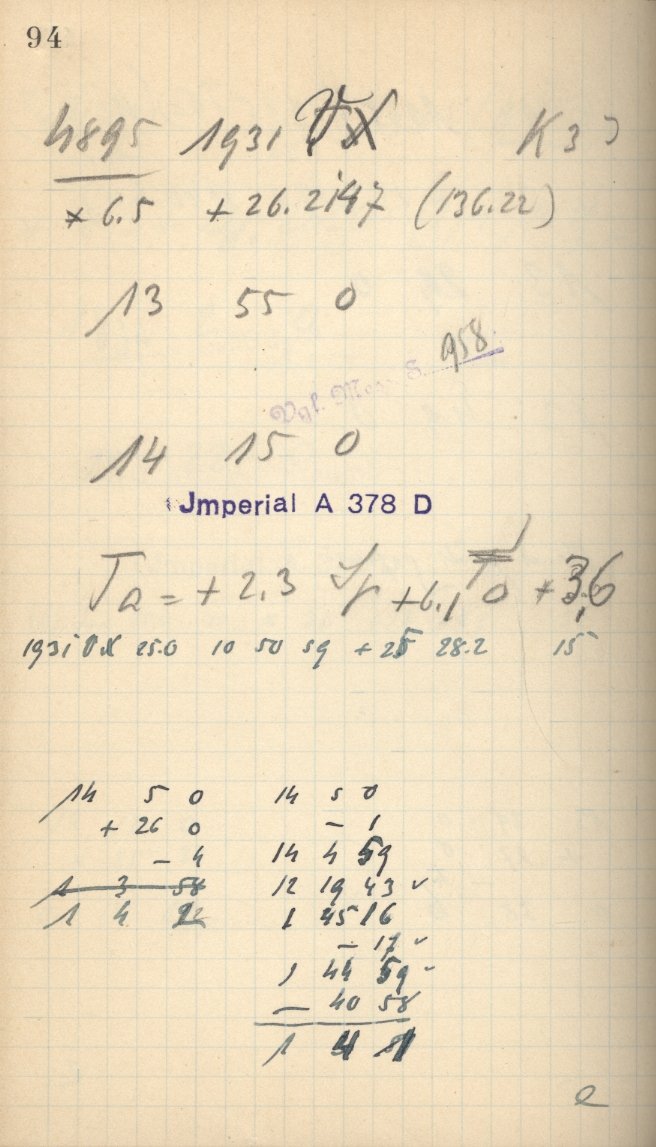 94
4895 1931 VX K 3
* 6.5 + 26.2147 (136.22)
13 55 0
Vgl. S. 958.
14 15 0
Jmperial A 378 D
Ta = + 2.3 +6.1 + 3,6
1931 VX 25.0 10 50 59 + 25 28.2 15
14 5 0 14 5 0
+ 26 0 - 1
- 4 14 4 59
1 3 58 12 19 43 ✓
1 4 1 45 16
- 17 ✓
1 44 59 -
- 40 58
1 4 1
e